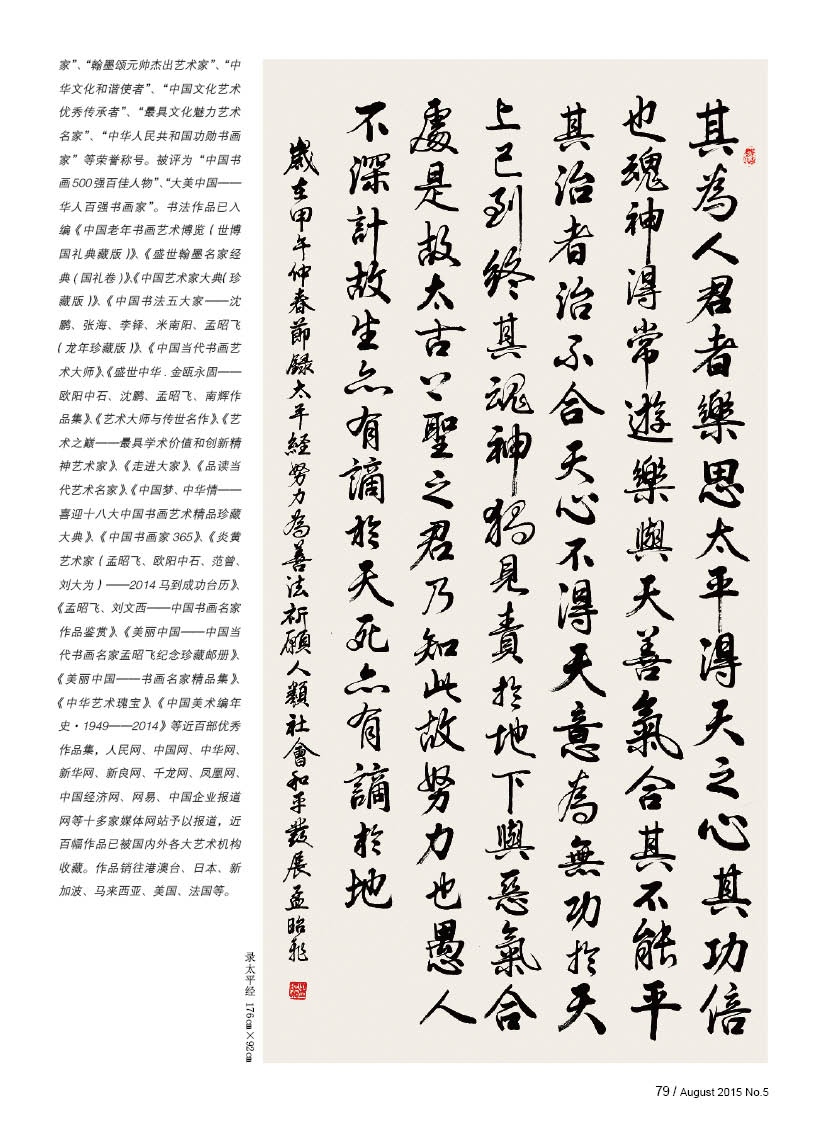 家”、“翰墨颂元帅杰出艺术家”、“中
华文化和谐使者”、“中国文化艺术
优秀传承者”、“最具文化魅力艺术
名家”、“中华人民共和国功勋书画
家”等荣誉称号。被评为“中国书
画500强百佳人物”、“大美中国——
华人百强书画家”。书法作品已入
编《中国老年书画艺术博览（世博
国礼典藏版）》、《盛世翰墨名家经
典（国礼卷）》、《中国艺术家大典（珍
藏版）》、《中国书法五大家——沈
鹏、张海、李铎、米南阳、孟昭飞
（龙年珍藏版）》、《中国当代书画艺
术大师》、《盛世中华．金瓯永固——
欧阳中石、沈鹏、孟昭飞、南辉作
品集》、《艺术大师与传世名作》、《艺
术之巅——最具学术价值和创新精
神艺术家》、《走进大家》、《品读当
代艺术名家》、《中国梦、中华情——
喜迎十八大中国书画艺术精品珍藏
大典》、《中国书画家365》、《炎黄
艺术家（孟昭飞、欧阳中石、范曾、
刘大为）——2014马到成功台历》、
《孟昭飞、刘文西——中国书画名家
作品鉴赏》、《美丽中国——中国当
代书画名家孟昭飞纪念珍藏邮册》、
《美丽中国——书画名家精品集》、
《中华艺术瑰宝》、《中国美术编年
史·1949——2014》等近百部优秀
作品集，人民网、中国网、中华网、
新华网、新良网、千龙网、凤凰网、
中国经济网、网易、中国企业报道
网等十多家媒体网站予以报道，近
百幅作品已被国内外各大艺术机构
收藏。作品销往港澳台、日本、新
加波、马来西亚、美国、法国等。
其為人君者樂思太平得天之心其功倍
也魂神得常遊樂與天善氣合其不能平
其治者治不合天心不得天意為無功於天
上已到終其魂神獨見責於地下與惡氣合
處是故太古上聖之君乃知此故努力也愚人
不深計故生亦有謫於天死亦有謫於地
歲在甲午仲春節錄太平經努力為善法祈願人類社會和平發展孟昭飛
录太平经 176cm×92cm
79 / August 2015 No.5